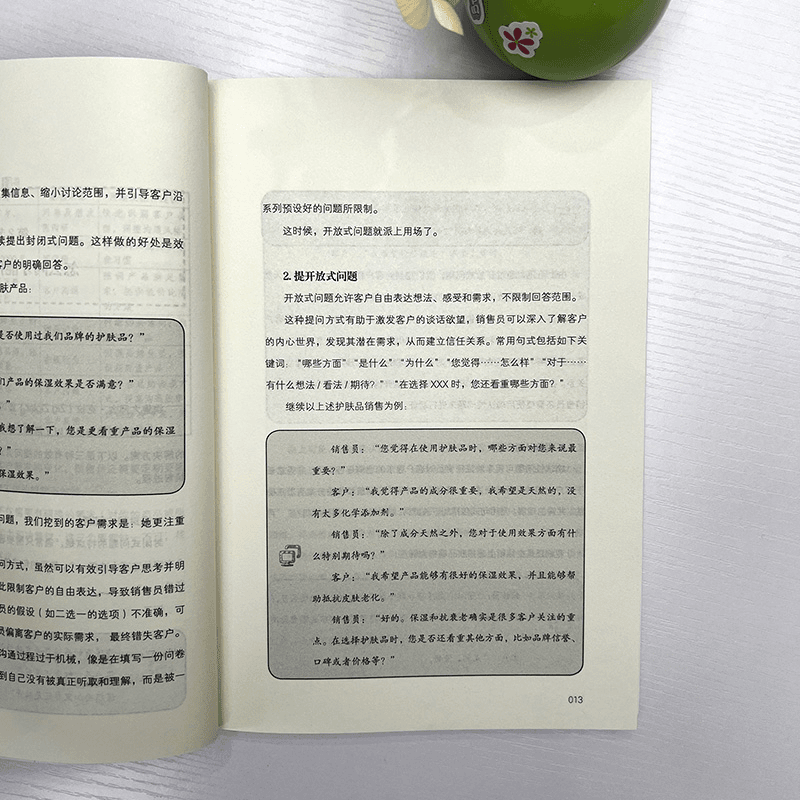 集信息、缩小讨论范围，并引导客户沿
续提出封闭式问题。这样做的好处是效
客户的明确回答。
肤产品：
是否使用过我们品牌的护肤品？”
们产品的保湿效果是否满意？”
。”
我想了解一下，您是更看重产品的保湿
？”
保湿效果。”
问题，我们挖到的客户需求是：她更注重
问方式，虽然可以有效引导客户思考并明
此限制客户的自由表达，导致销售员错过
员的假设（如二选一的选项）不准确，可
员偏离客户的实际需求，最终错失客户。
沟通过程过于机械，像是在填写一份问卷
到自己没有被真正听取和理解，而是被一
系列预设好的问题所限制。
这时候，开放式问题就派上用场了。
2. 提开放式问题
开放式问题允许客户自由表达想法、感受和需求，不限制回答范围。
这种提问方式有助于激发客户的谈话欲望，销售员可以深入了解客户
的内心世界，发现其潜在需求，从而建立信任关系。常用句式包括如下关
键词：“哪些方面”“是什么”“为什么”“您觉得……怎么样”“对于……
有什么想法 / 看法 / 期待？”“在选择 XXX 时，您还看重哪些方面？”
继续以上述护肤品销售为例：
销售员：“您觉得在使用护肤品时，哪些方面对您来说最
重要？”
客户：“我觉得产品的成分很重要，我希望是天然的，没
有太多化学添加剂。”
销售员：“除了成分天然之外，您对于使用效果方面有什
么特别期待吗？”
客户：“我希望产品能够有很好的保湿效果，并且能够帮
助抵抗皮肤老化。”
销售员：“好的。保湿和抗衰老确实是很多客户关注的重
点。在选择护肤品时，您是否还看重其他方面，比如品牌信誉、
口碑或者价格等？”
013